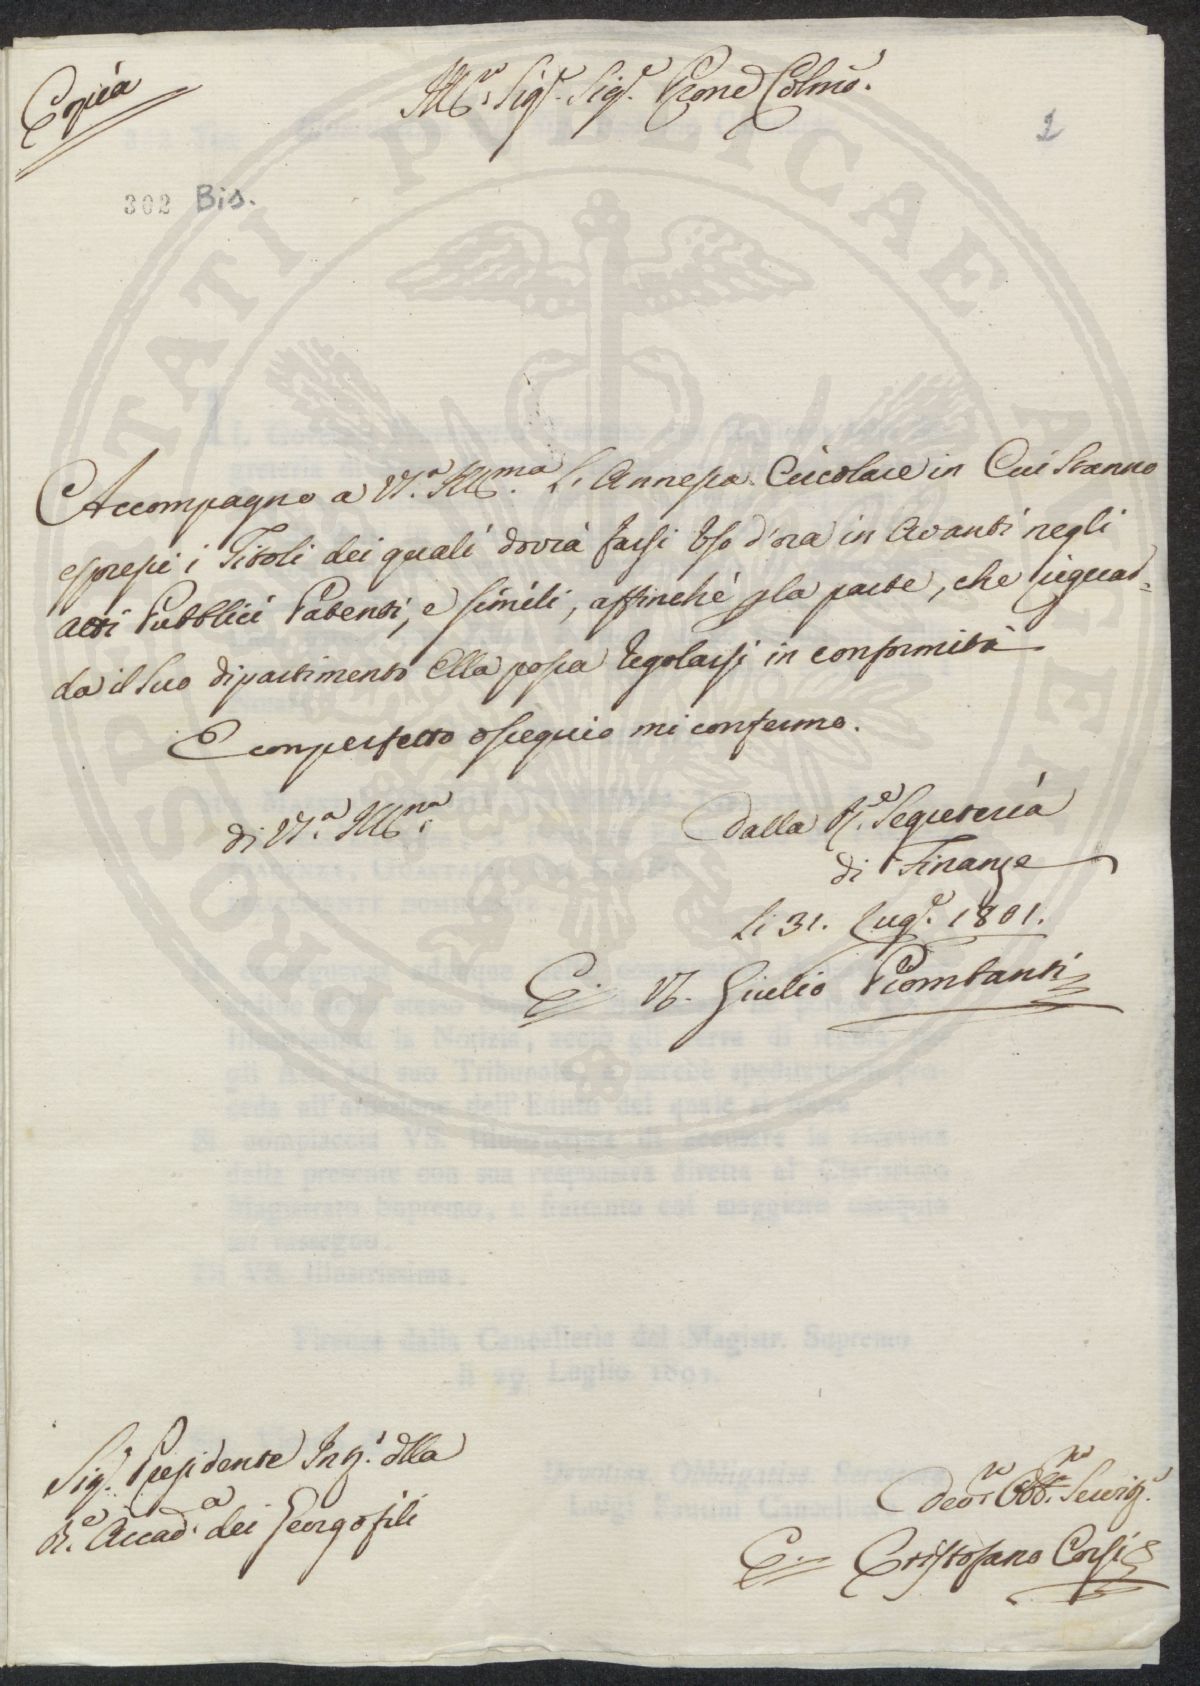 Copia
Ill.mo Sig.r Sig.e P̃rone Colmo.
2
302 Bis.
Accompagno a V.a Ill.ma l'Annessa Circolare in Cui Stanno
espressi i Titoli dei quali dovrà farsi Uso d'ora in Avanti negli
Atti Pubblici Patenti, e simili, affinchè p la parte, che riguar=
da il Suo dipartimento Ella possa Regolarsi in conformità
E con perfetto ossequio mi confermo.
di V.a Ill.ma
Dalla R.e Segreteria
di Finanze
Li 31. Lug.e 1801.
C. V. Giulio Piombanti
Sig.r Presidente Int.i dlla
R.e Accad.a dei Georgofili
Dev.mo Obb.mo Servit.e
C. Cristofano Corsi
PROSPERITATI PUBLICAE AUGENDAE